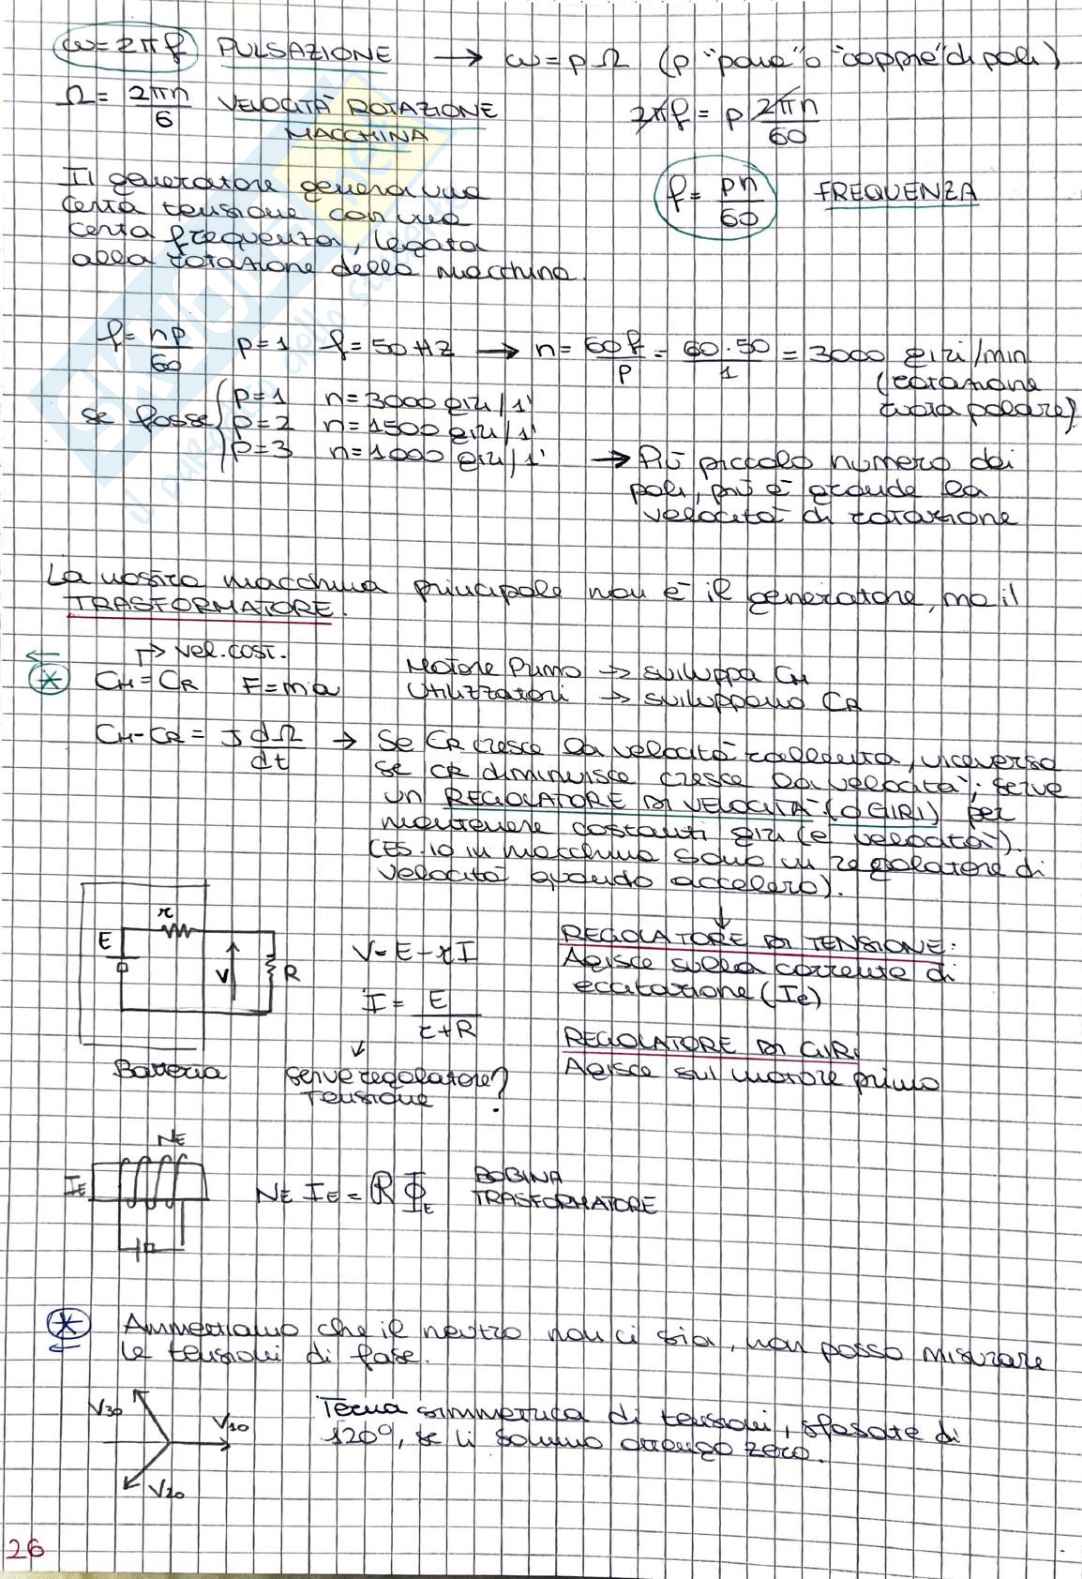 ω=2πf PULSAZIONE → ω=pΩ (p "paia" o "coppie" di poli)
Ω= 2πn/6 VELOCITÀ ROTAZIONE
MACCHINA
2πf = p 2πn/60
Il generatore genera una
certa tensione con una
certa frequenza, legata
alla rotazione della macchina.
f= pn/60 FREQUENZA
f= np/60 p=1 f=50Hz → n= 60f/p = 60·50/1 = 3000 giri/min
(rotazione
ruota polare)
se fosse p=1 n=3000 giri/1'
p=2 n=1500 giri/1'
p=3 n=1000 giri/1' → Più piccolo numero dei
poli, più è grande la
velocità di rotazione
La nostra macchina principale non è il generatore, ma il
TRASFORMATORE.
→ vel. cost.
CM=CR F=ma
Motore Primo → sviluppa CM
Utilizzatori → sviluppano CR
CM-CR = J dΩ/dt → Se CR cresce la velocità rallenta, viceversa
se CR diminuisce cresce la velocità; serve
un REGOLATORE DI VELOCITÀ (O GIRI) per
mantenere costanti giri (e velocità).
(ES. io in macchina sono un regolatore di
velocità quando accelero).
E r V R
Batteria
V=E-rI
I= E/r+R
↓
serve regolatore
tensione?
↓
REGOLATORE DI TENSIONE:
Agisce sulla corrente di
eccitazione (Ie)
REGOLATORE DI GIRI
Agisce sul motore primo
NE
IE
NE IE = R ΦE
BOBINA
TRASFORMATORE
Ammettiamo che il neutro non ci sia, non posso misurare
le tensioni di fase.
V30
V10
V20
Terna simmetrica di tensioni, sfasate di
120°, se li sommo ottengo zero.
26